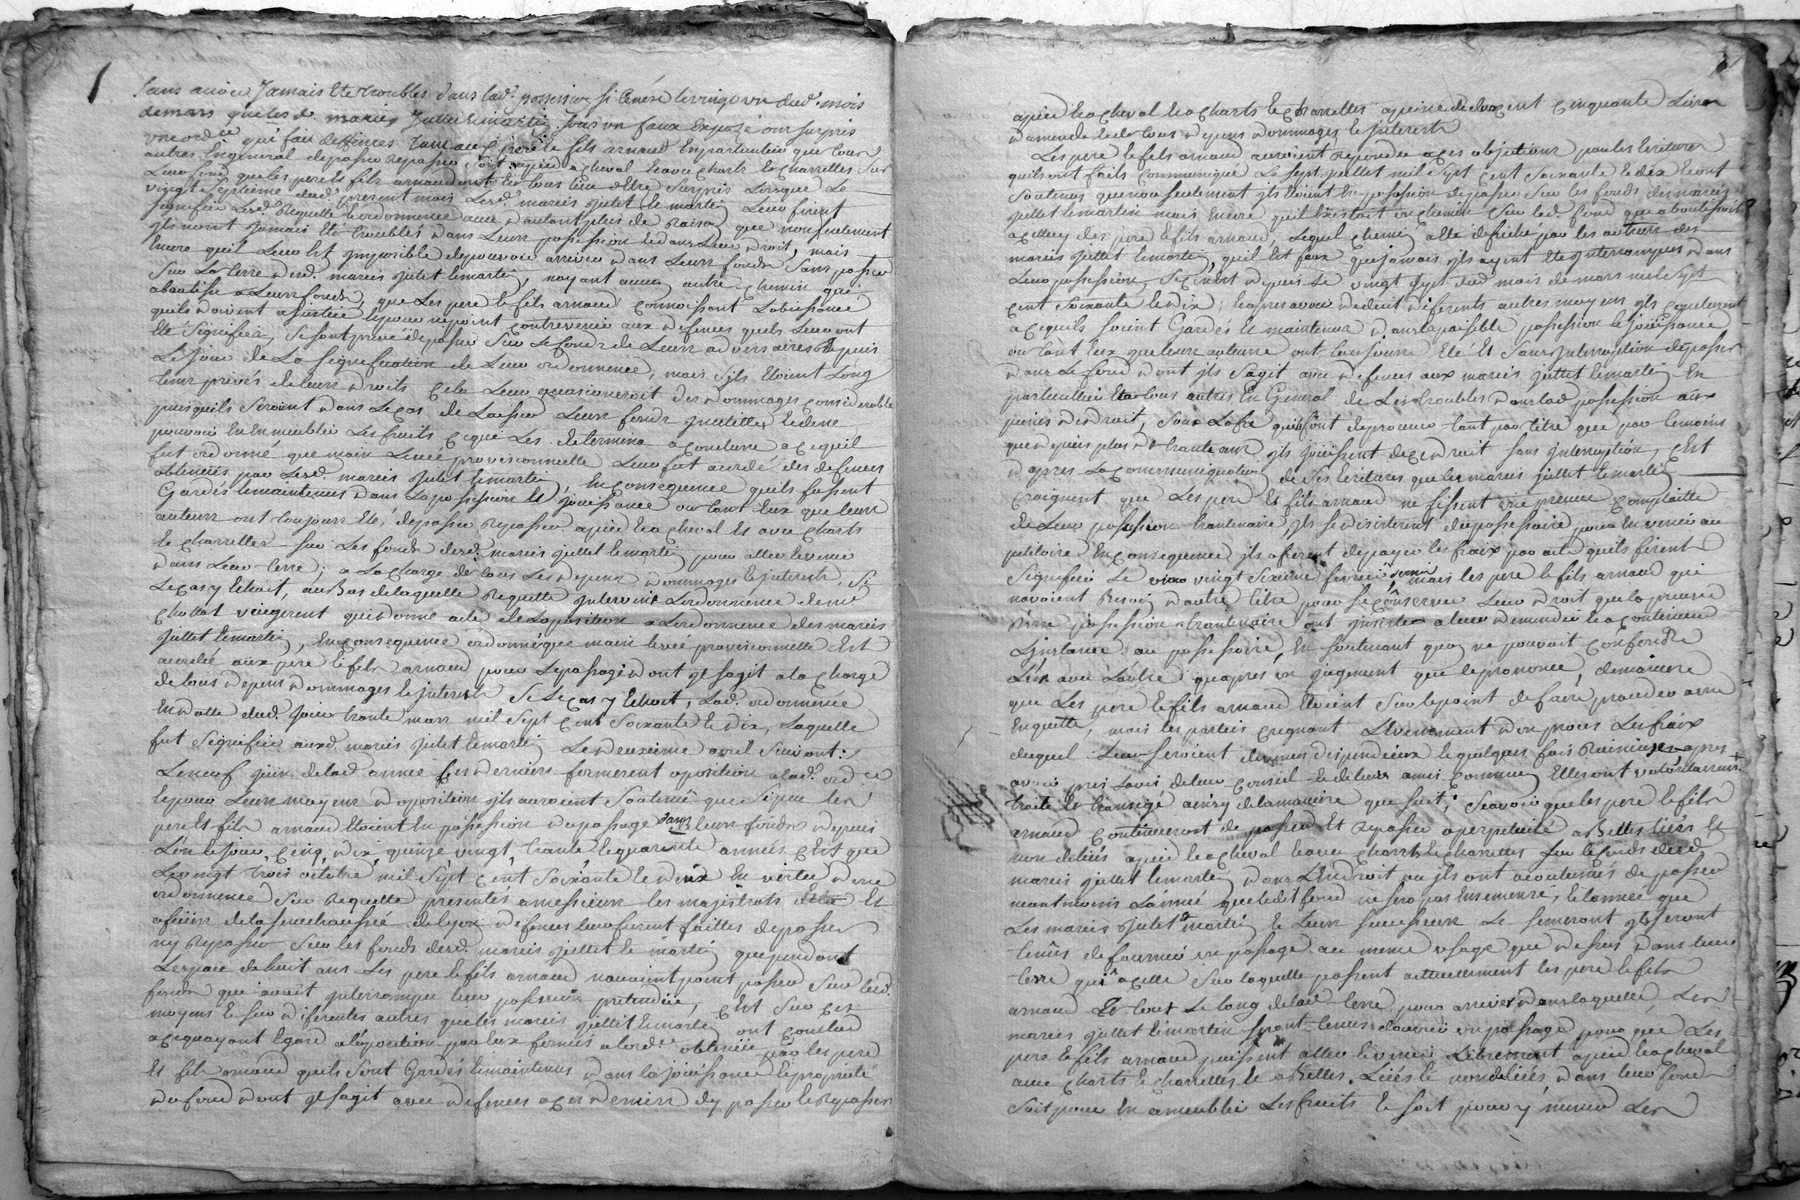 1
sans avoir Jamais été troublés dans lad. possession, si ce n'est le vingt un dud. mois
de mars que les d. mariés Juttet et martin sous un faux Exposé ont surpris
une ordce qui fait deffences tant aux pere et fils arnaud En particulier que tous
autres En general de passer Repasser soit apied a cheval et avec charts et charrettes sur
Leur fond que les pere et fils arnaud ont Eu tous lieu d'Etre surpris Lorsque Le
vingt septième dud. present mois Lesd. mariés Juttet et martin Leur firent
signiffier Lesd. Requette et ordonnence avec d'autant plus de Raison que non seulement
ils n'ont Jamais Eté troublés dans Leur possession et dans Leur droit, mais
Encore qu'il Leur Est Impossible de pouvoir arriver dans Leurs fonds sans passer
sur La terre desd. mariés Jutet et martin, n'ayant aucun autre chemin qui
aboutisse a Leurs fonds, que Les pere et fils arnaud connoissant L'obeissance
qu'ils doivent a justice et pour ne point contrevenir aux defences qu'ils Leur ont
Eté signifiées, se sont privé de passer sur Le fonds de Leurs adversaires depuis
Le jour de La signification de Leur ordonnence, mais s'ils Etoient Long
tems privés de leurs droits cela Leur ocasioneroit des dommages considerable
puisqu'ils seroint dans Le cas de Laisser Leurs fonds Incultes et de ne
pouvoir En Enmeublir Les fruits ce que Les determina a conclure a ce qu'il
fut ordonné que main Levée provisionnelle Leur fut acordé des defences
obtenües par Lesd. mariés Jutet et martin, En consequence qu'ils fussent
Gardés et maintenus dans La possession Et jouissance ou tant Eux que leurs
auteurs ont toujours Eté, de passer Repasser apied et a cheval Et avec charts
et charrettes sur Les fonds desd. mariés Juttet et martin pour aller et venir
dans Leur terre, a La charge de tous Les depens dommages et interets, si
Le cas y Echoit, au Bas de laquelle Requette Intervint L'ordonnence de mr
chollat viegerent qui donne acte de L'oposition a L'ordonnence des mariés
Juttet et martin, En consequence ordonne que main Levée provisionnelle Est
acordée aux pere et fils arnaud pour Le passage dont il s'agit a la charge
de tous depens dommages et interets si Le cas y Echoit, Lad. ordonnence
En datte dud. Jour trente mars mil sept cent soixante et dix, Laquelle
fut signifiée auxd. mariés Jutet et martin Le deuxième avril suivant:
Le neuf juin de lad. année ces derniers formerent oposition a lad. ordce
et pour Leurs moyens d'oposition ils auroient soutenu que si que les
pere Et fils arnaud Etoient En possession du passage dans leurs fonds depuis
L'an et jour, cinq, dix, quinze vingt, trente et quarente années c'Est que
Le vingt trois octobre mil sept cent soixante et deux En vertu d'une
ordonnence sur Requette presentés a messieurs les majistrats Et
officiers de la senechaussée de Lyon defences leur furent faittes de passer
ny Repasser sur les fonds desd. mariés Juttet et martin que pendant
L'espace de huit ans Les pere et fils arnaud n'avoient point passer sur led.
fonds que avoit Interrompu leur possession pretendüe, c'Est sur ces
moyens et sur differentes autres que les mariés Juttet et martin ont conclud
a ce qu'ayant Egard a l'oposition par Eux formée a lordce obtenüe par les pere
Et fils arnaud qu'ils sont Gardés et maintenus dans la jouissance et proprieté
du fond dont il s'agit avec defences a ces derniers d'y passer et Repasser
apied et a cheval et a charts et charrettes a peine de cinquante Livres
d'amende et de tous depens dommages et Interets
Les pere et fils arnaud auroient repondu a ces objections par les Ecritures
qu'ils ont faits communiquer Le sept juillet mil sept cent soixante et dix et ont
soutenus que non seulement ils Etoient En possession de passer sur les fonds des mariés
Juttet et martin mais Encore qu'il Existoit un chemin sur led. fond que aboutissoit
a celluy des pere et fils arnaud, Lequel chemin a Eté defriché par les auteurs des
mariés Juttet et martin, qu'il Est faux que jamais ils ayent Eté interrompus dans
Leur possession, depuis Le vingt sept dud. mois de mars mil sept
cent soixante et dix; et apres avoir dedeuit diferents autres moyens ils conclurent
a ce qu'ils soient Gardés Et maintenus dans la paisible possession et joüissance
ou tant Eux que leurs auteurs ont toujours Eté Et sans Interruption de passer
dans Le fond dont ils s'agit avec defences aux mariés Juttet et martin En
particullier Et a tous autres En General de Les troubles dans lad. possession aux
peines de droit, sous L'ofre qu'ils font de prouver tant par titre que par temoins
que depuis plus de trente ans ils joüissent de ce droit sans Interruption, c'Est
d'apres La communiquation de ces Ecritures que les mariés Juttet et martin
craignent que Les pere Et fils arnaud ne fissent une preuve complaitte
de Leur possession trantenaire, ils se desisterent du possessoire pour En venir au
petitoire En consequence ils offrirent de payer les fraix par acte qu'ils firent
signifier Le vingt sixième fevrier dernier, mais les pere et fils arnaud qui
n'avoient Besoin d'autre titre pour se conserver Leur droit que la preuve
d'une possession trantenaire ont Insisté a leur demande et a continuer
L'instance au possessoire, En soutenant qu'on ne pouvoit confondre
L'un avec L'autre qu'apres un jugement que le prononce, de maniere
que Les pere et fils arnaud Etoient sur le point de faire proceder a une
Enquette, mais les parties craignant L'Evenement d'un proces Les fraix
duquel Leur seroient devenus dispendieux et quelques fois Ruineux apres
avoir pris L'avis de leur conseil et de leurs amis communs Elles ont volontairement
traité Et transigé ainsy et de la maniere que suit; sçavoir que les pere et fils
arnaud continueront de passer Et Repasser a perpetuité a Bettes liées Et
non deliées apied et a cheval et avec charts et charrettes sur le fonds desd.
mariés Juttet et martin dans L'Endroit ou ils ont acoutumés de passer
neantmoins L'année que ledit fond ne sera pas Ensemencé, et l'année que
Les mariés Jutet et martin et Leurs successeurs Le semeront ils seront
tenûs de fournir un passage au meme usage que dessus dans leur
terre qu'a celle sur laquelle passent actuellement les pere et fils
arnaud Et tout Le long de lad. terre, pour arriver dans laquelle, Les
mariés Juttet et martin seront tenus d'ouvrir un passage pour que Les
pere et fils arnaud puissent aller et venir Librement apied et a cheval
avec charts et charrettes et a Bettes Liées et non deliées dans leur fond
soit pour En ameublir Les fruits et soit pour y mener Les